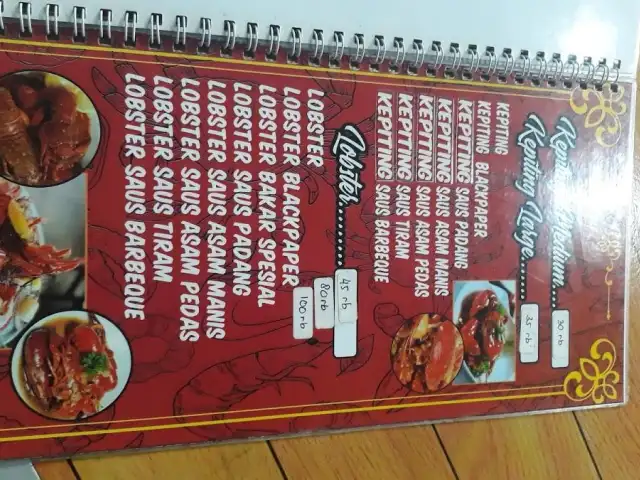 Kepiting Medium...... 30 rb
Kepiting Large........ 35 rb
KEPITING
KEPITING BLACKPAPER
KEPITING SAUS PADANG
KEPITING SAUS ASAM MANIS
KEPITING SAUS ASAM PEDAS
KEPITING SAUS TIRAM
KEPITING SAUS BARBEQUE
Lobster......... 45 rb
80 rb
100 rb
LOBSTER
LOBSTER BLACKPAPER
LOBSTER BAKAR SPESIAL
LOBSTER SAUS PADANG
LOBSTER SAUS ASAM MANIS
LOBSTER SAUS ASAM PEDAS
LOBSTER SAUS TIRAM
LOBSTER SAUS BARBEQUE